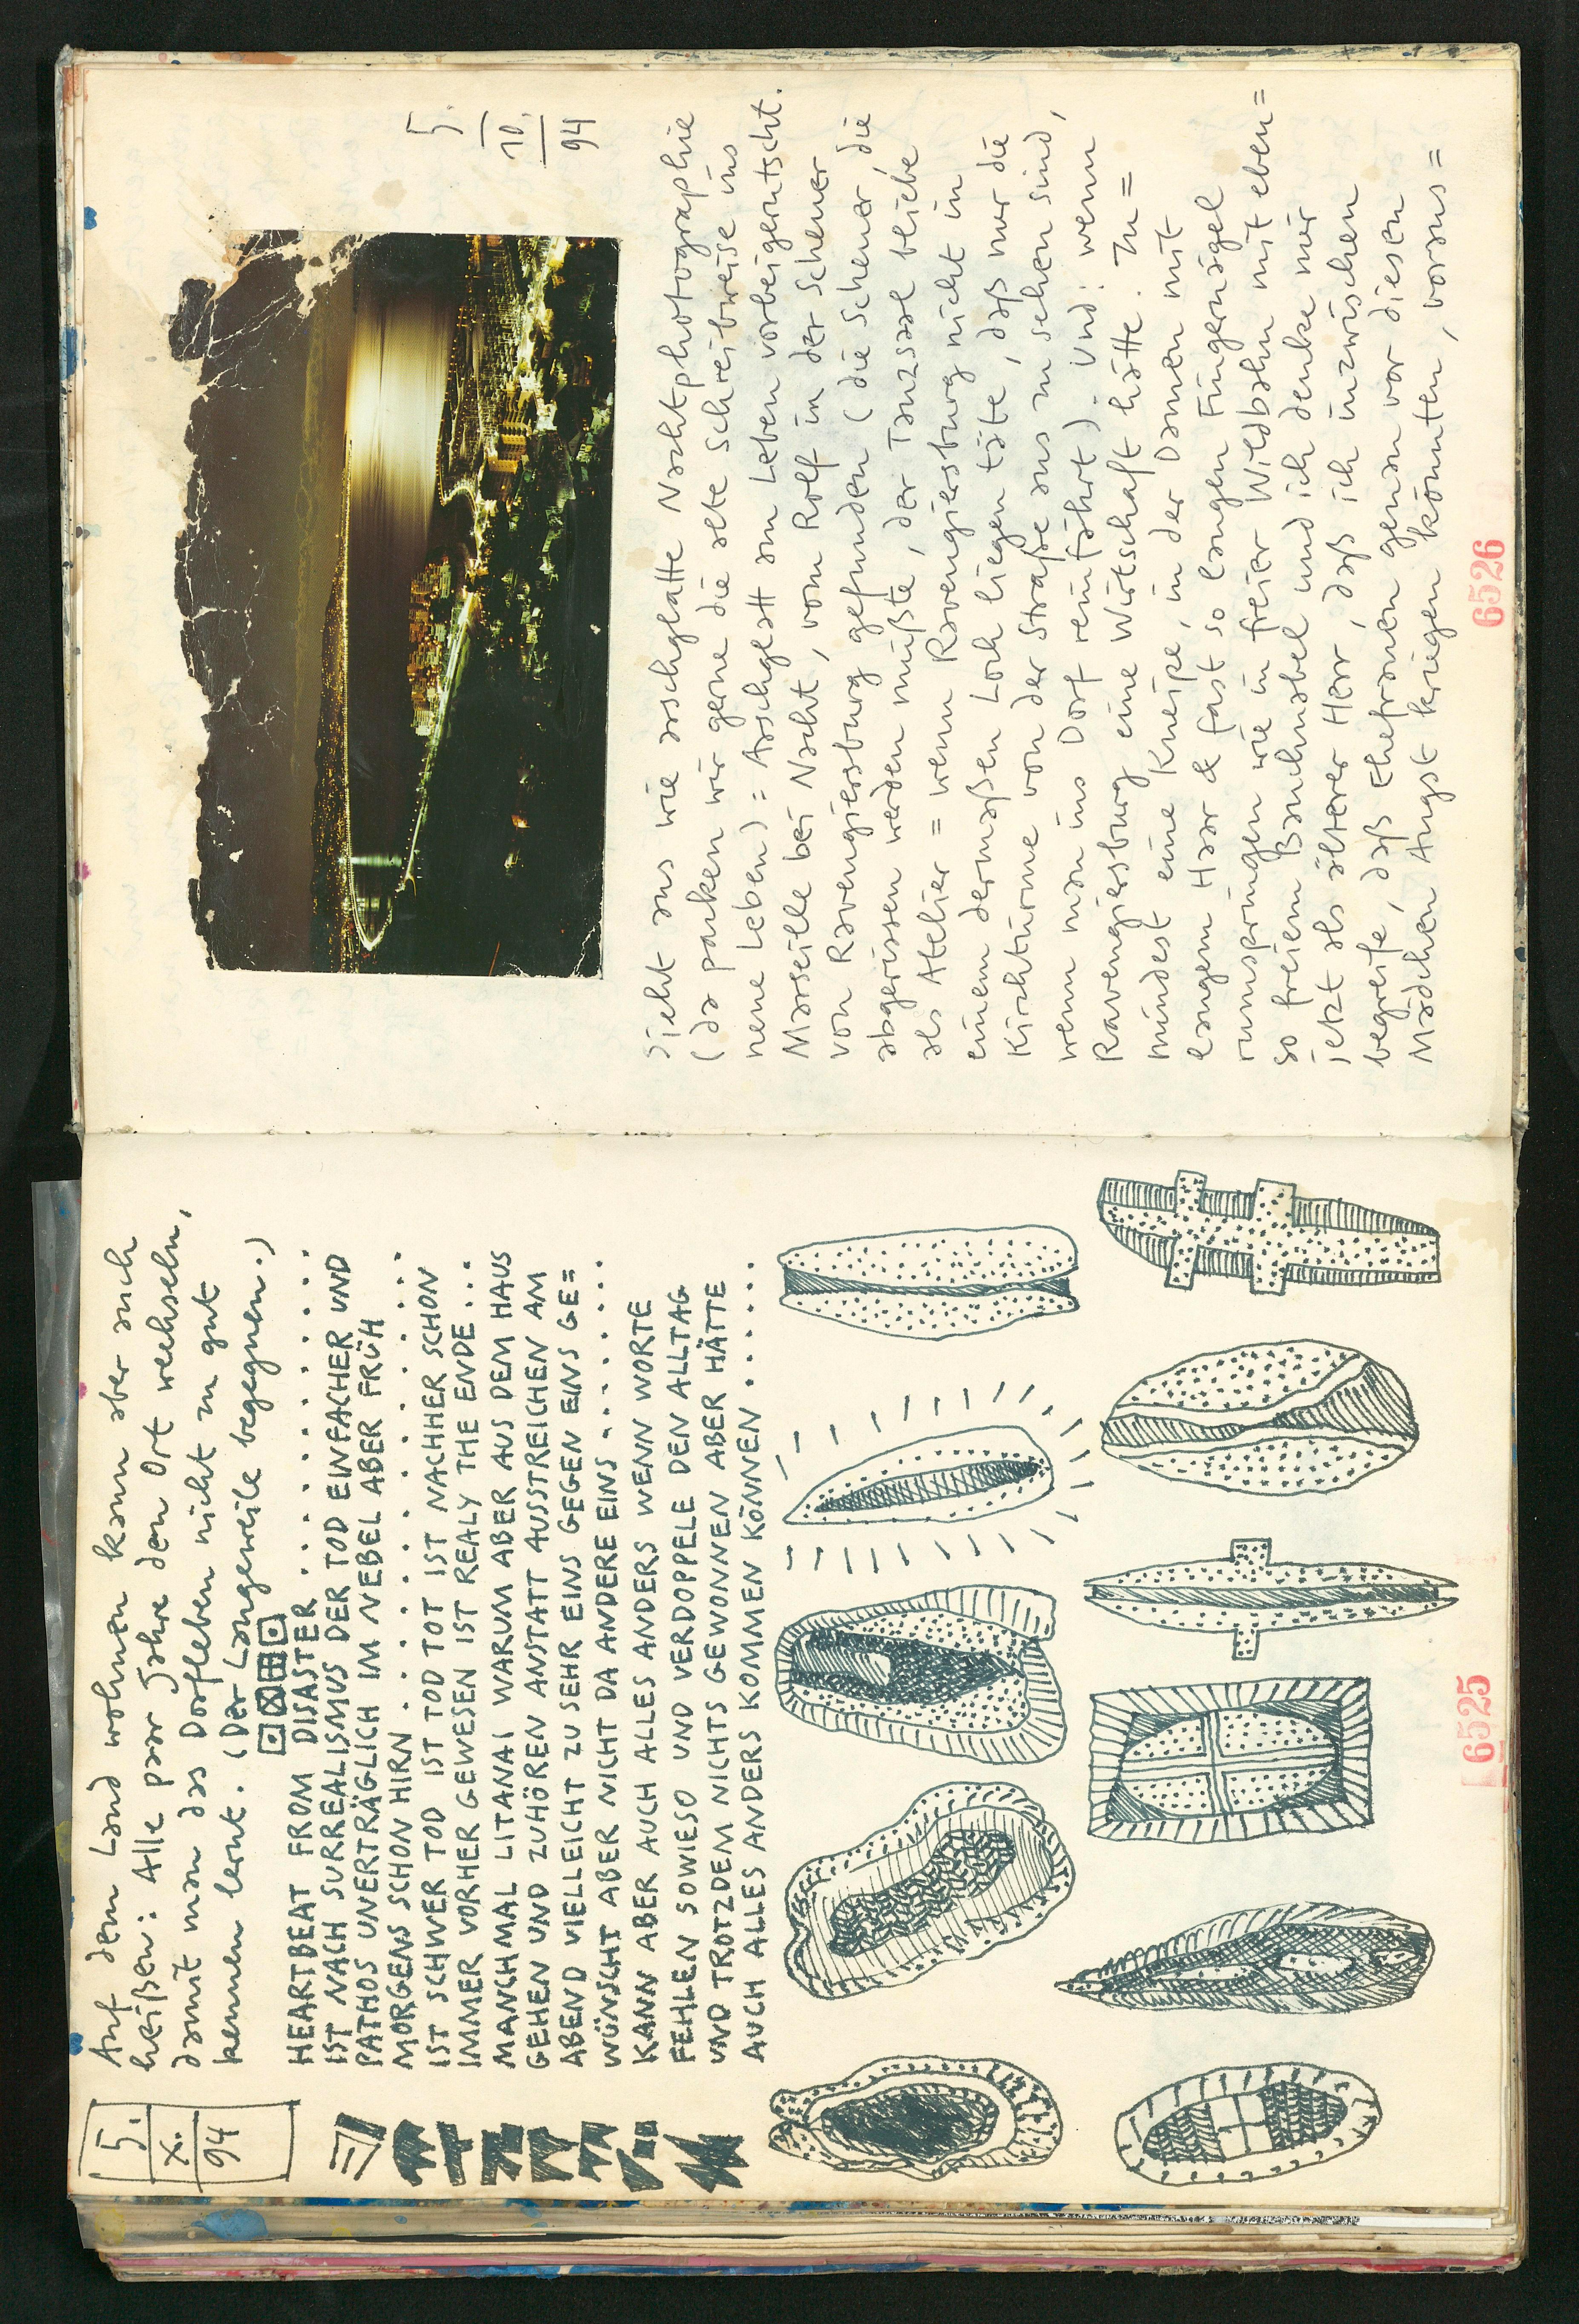 5.
X.
94
Auf dem Land wohnen kann aber auch
heißen: Alle paar Jahre den Ort wechseln,
damit man das Dorfleben nicht zu gut
kennen lernt. (Der Langeweile begegnen.)
HEARTBEAT FROM DISASTER . . . . . . . . . . .
IST NACH SURREALISMUS DER TOD EINFACHER UND
PATHOS UNVERTRÄGLICH IM NEBEL ABER FRÜH
MORGENS SCHON HIRN . . . . . . . . . . . . . .
IST SCHWER TOD IST TOD TOT IST NACHHER SCHON
IMMER VORHER GEWESEN IST REALY THE ENDE . . .
MANCHMAL LITANAI WARUM ABER AUS DEM HAUS
GEHEN UND ZUHÖREN ANSTATT AUSSTREICHEN AM
ABEND VIELLEICHT ZU SEHR EINS GEGEN EINS GE=
WÜNSCHT ABER NICHT DA ANDERE EINS . . . . . . .
KANN ABER AUCH ALLES ANDERS WENN WORTE
FEHLEN SOWIESO UND VERDOPPELE DEN ALLTAG
UND TROTZDEM NICHTS GEWONNEN ABER HÄTTE
AUCH ALLES ANDERS KOMMEN KÖNNEN . . . . . .
6525
5.
10.
94
Sieht aus wie arschglatte Nachtphotographie
(da parken wir gerne die alte Schreibweise ins
neue Leben): Arschglatt am Leben vorbeigerutscht.
Marseille bei Nacht, vom Rolf in der Scheuer
von Ravengiersburg gefunden (die Scheuer, die
abgerissen werden müßte, der Tanzsaal bliebe
als Atelier = wenn Ravengiersburg nicht in
einem dermaßen Loch liegen täte, daß nur die
Kirchtürme von der Straße aus zu sehen sind,
wenn man ins Dorf reinfährt). Und: wenn
Ravengiersburg eine Wirtschaft hätte. Zu=
mindest eine Kneipe, in der Damen mit
langem Haar & fast so langen Fingernägel
rumspringen wie in freier Wildbahn mit eben=
so freiem Bauchnabel und ich denke mir
jetzt als älterer Herr, daß ich inzwischen
begreife, daß Ehefrauen genau vor diesen
Mädchen Angst kriegen könnten, voraus=
6526